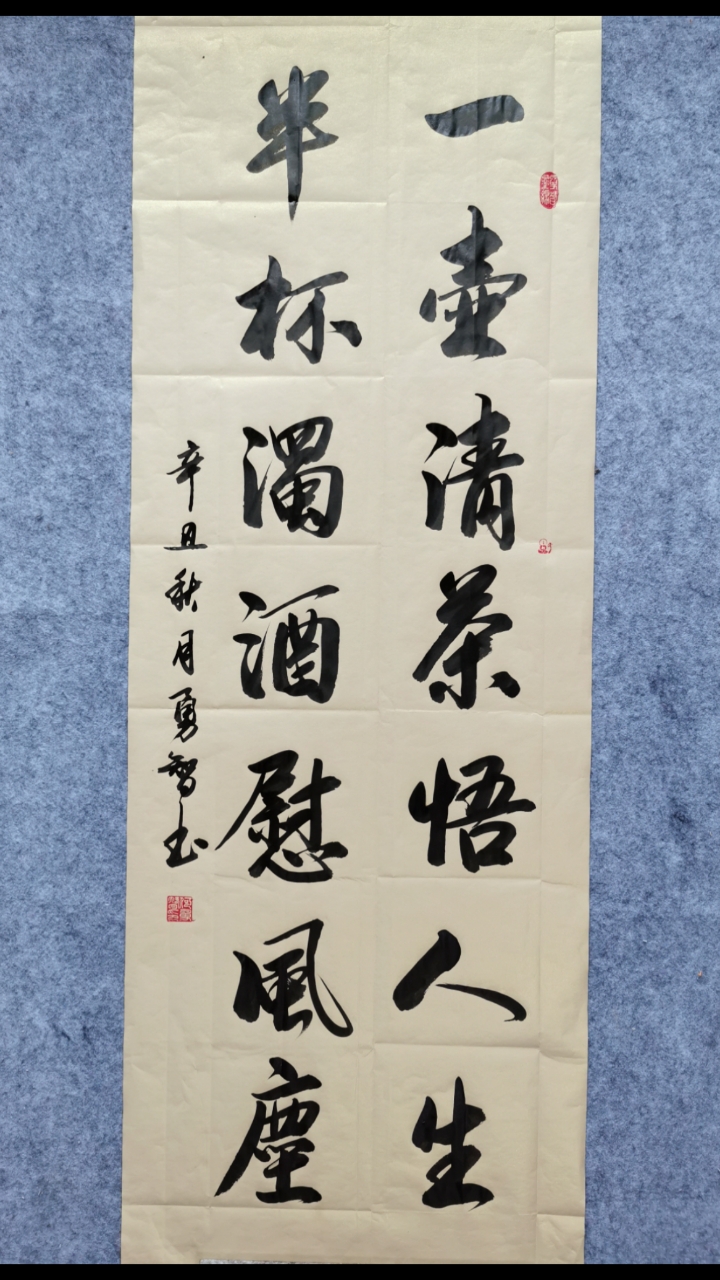 一壺清茶悟人生
半杯濁酒慰風塵
辛丑秋月勇智玉